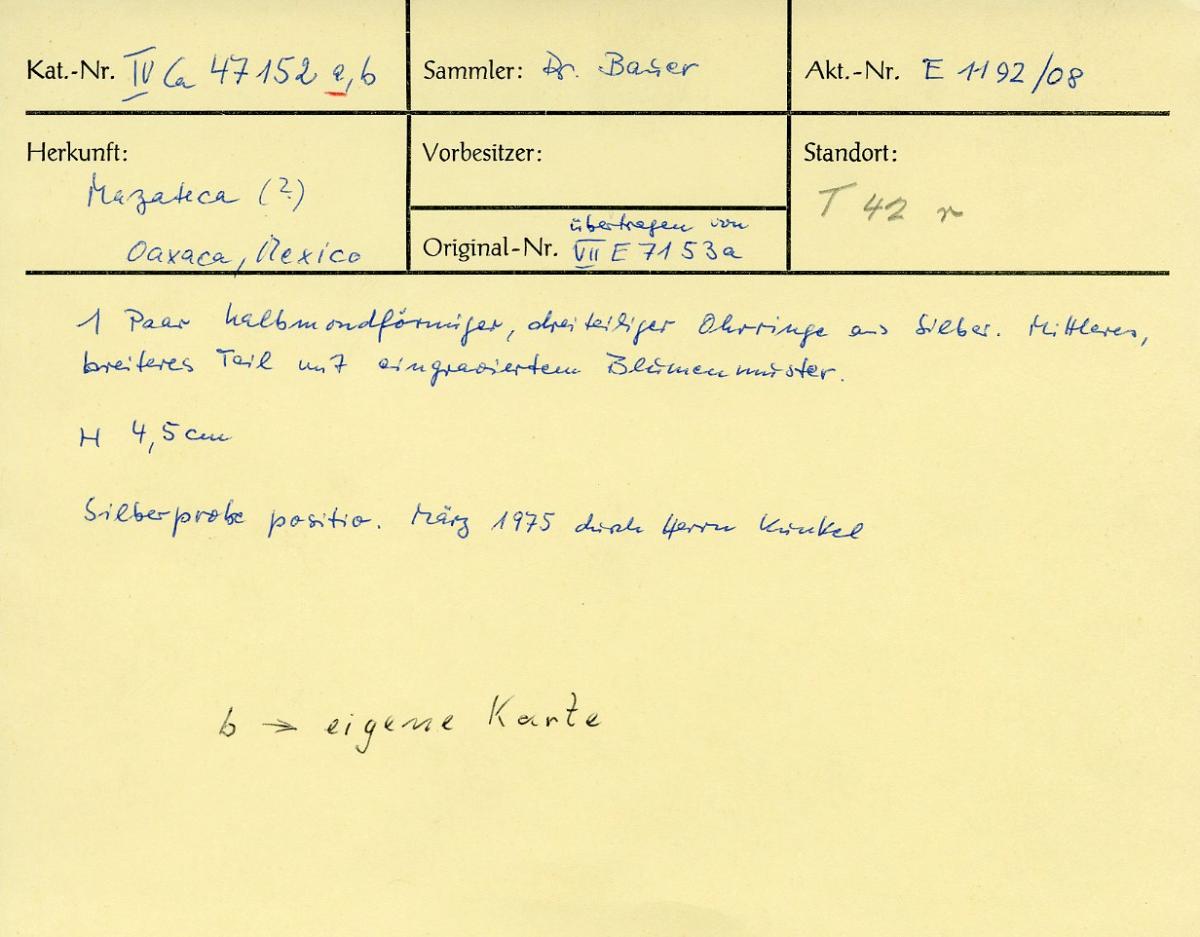 Kat.-Nr. IV Ca 47152 a,b
Sammler: Dr. Bauer
Akt.-Nr. E 1192/08
Herkunft:
Mazateca (?)
Oaxaca, Mexico
Vorbesitzer:
Original-Nr. übertragen von
VII E 7153a
Standort:
T 42 r
1 Paar halbmondförmiger, dreiteiliger Ohrringe aus Silber. Mittleres,
breiteres Teil mit eingraviertem Blumenmuster.
H 4,5 cm
Silberprobe positiv. März 1975 durch Herrn Kunkel
b → eigene Karte